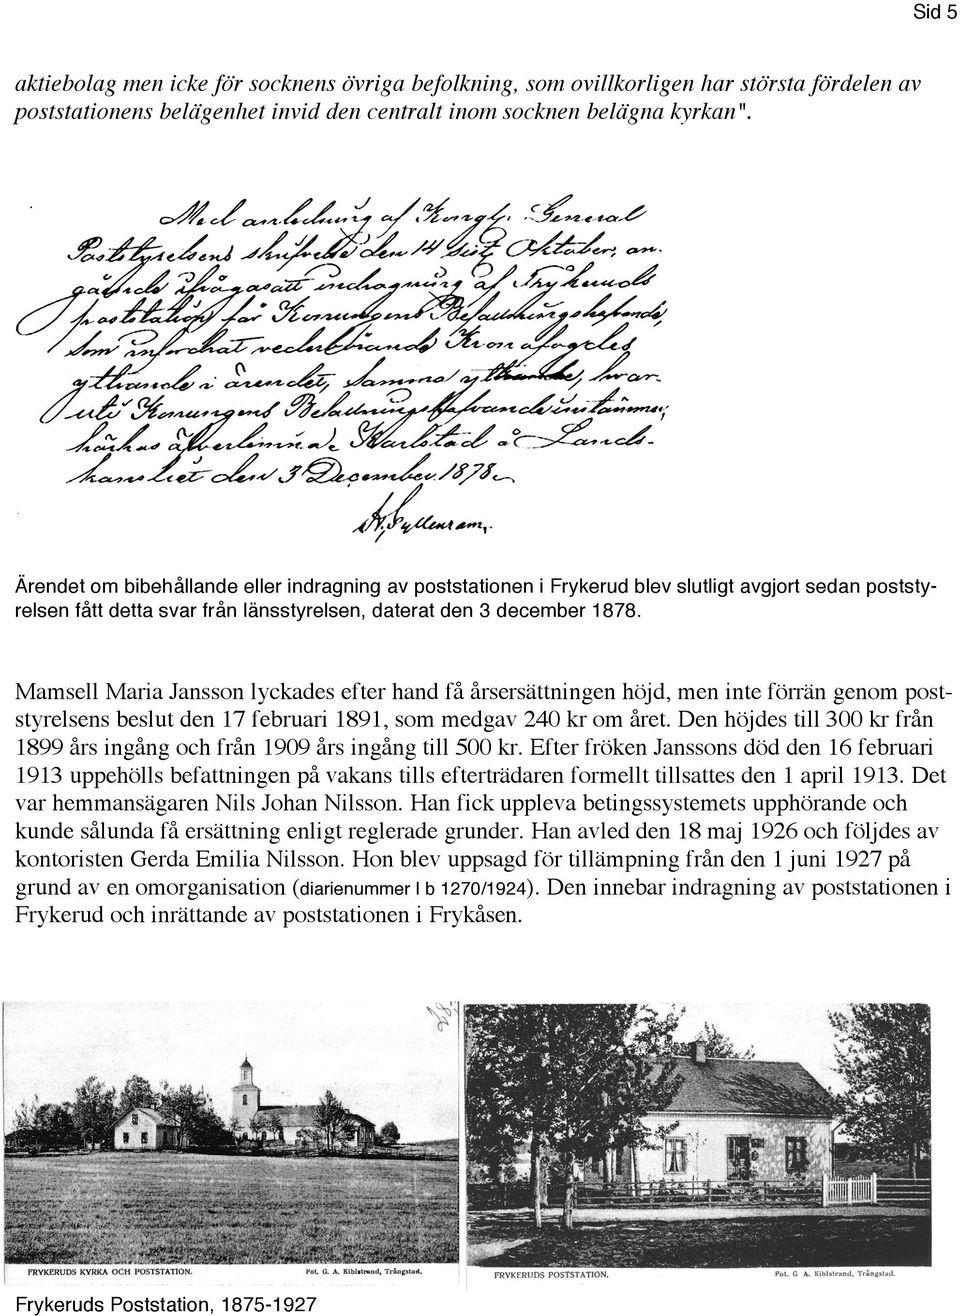 Sid 5
aktiebolag men icke för socknens övriga befolkning, som ovillkorligen har största fördelen av
poststationens belägenhet invid den centralt inom socknen belägna kyrkan".
Med anledning af Kongl. General
Poststyrelsens skrifvelse den 14 sist. Oktober, an-
gående ifrågasatt indragning af Frykeruds
poststation, får Konungens Befallningshafvande,
som infordrat vederbörande Kronofogdes
yttrande i ärendet, samma yttrande, hvar-
uti Konungens Befallningshafvande instämmer,
härhos öfverlemna. Karlstad å Lands-
kansliet den 3 December 1878.
H. Gyllenram.
Ärendet om bibehållande eller indragning av poststationen i Frykerud blev slutligt avgjort sedan poststy-
relsen fått detta svar från länsstyrelsen, daterat den 3 december 1878.
Mamsell Maria Jansson lyckades efter hand få årsersättningen höjd, men inte förrän genom post-
styrelsens beslut den 17 februari 1891, som medgav 240 kr om året. Den höjdes till 300 kr från
1899 års ingång och från 1909 års ingång till 500 kr. Efter fröken Janssons död den 16 februari
1913 uppehölls befattningen på vakans tills efterträdaren formellt tillsattes den 1 april 1913. Det
var hemmansägaren Nils Johan Nilsson. Han fick uppleva betingssystemets upphörande och
kunde sålunda få ersättning enligt reglerade grunder. Han avled den 18 maj 1926 och följdes av
kontoristen Gerda Emilia Nilsson. Hon blev uppsagd för tillämpning från den 1 juni 1927 på
grund av en omorganisation (diarienummer I b 1270/1924). Den innebar indragning av poststationen i
Frykerud och inrättande av poststationen i Frykåsen.
FRYKERUDS KYRKA OCH POSTSTATION. Fot. G. A. Kihlstrand, Trångstad.
FRYKERUDS POSTSTATION. Fot. G A. Kihlstrand, Trångstad.
Frykeruds Poststation, 1875-1927